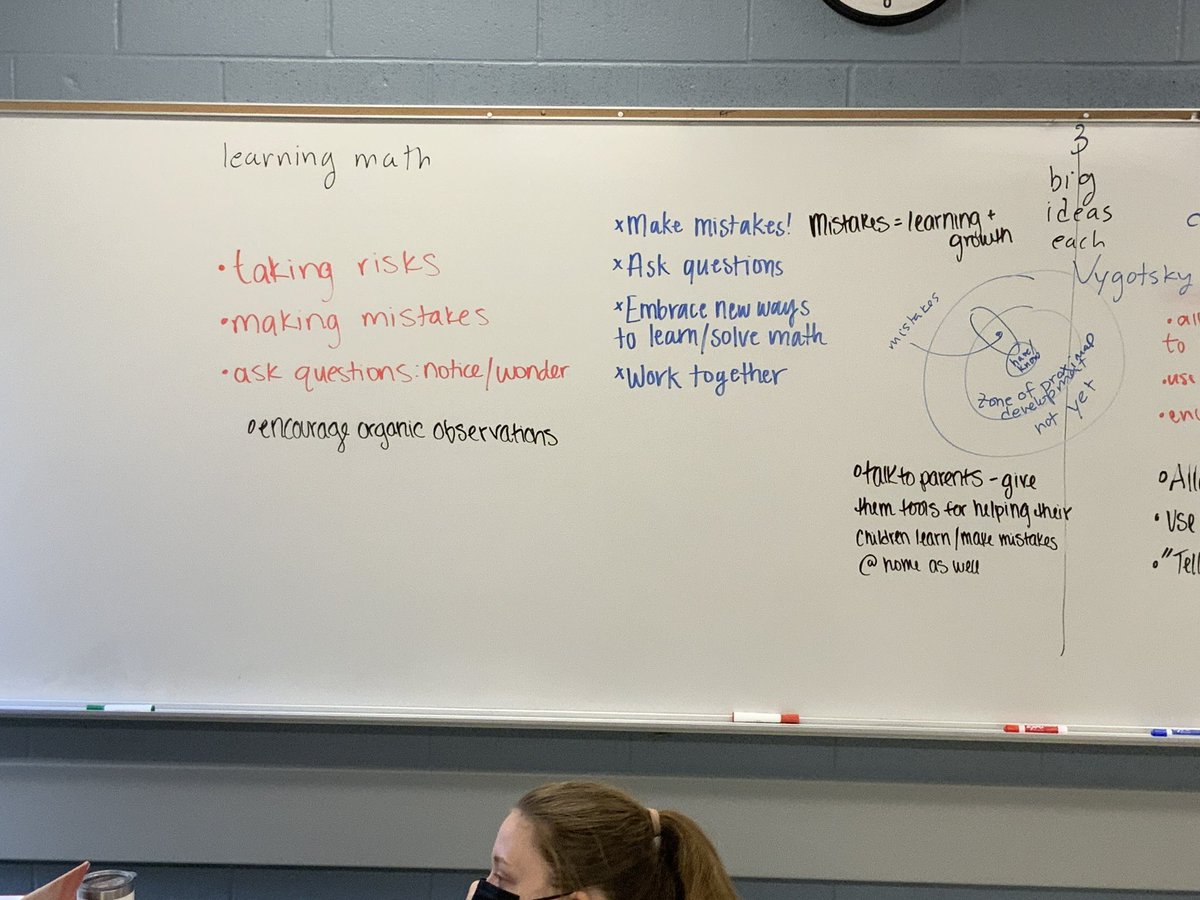 learning math
• taking risks
• making mistakes
• ask questions: notice/wonder
o encourage organic observations
x Make mistakes!
x Ask questions
x Embrace new ways
to learn/solve math
x Work together
Mistakes = learning +
growth
3
big
ideas
each
Vygotsky
mistakes
have/
know
zone of proximal
development
not yet
o talk to parents - give
them tools for helping their
children learn/make mistakes
@ home as well
• all
to
• use
• enc
o All
• Use
• "Tell